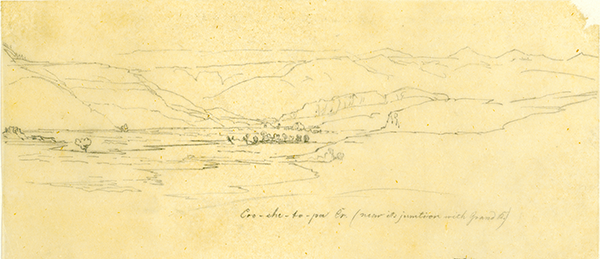 Coo-che-to-pa Cr (near its junction with Grand R)